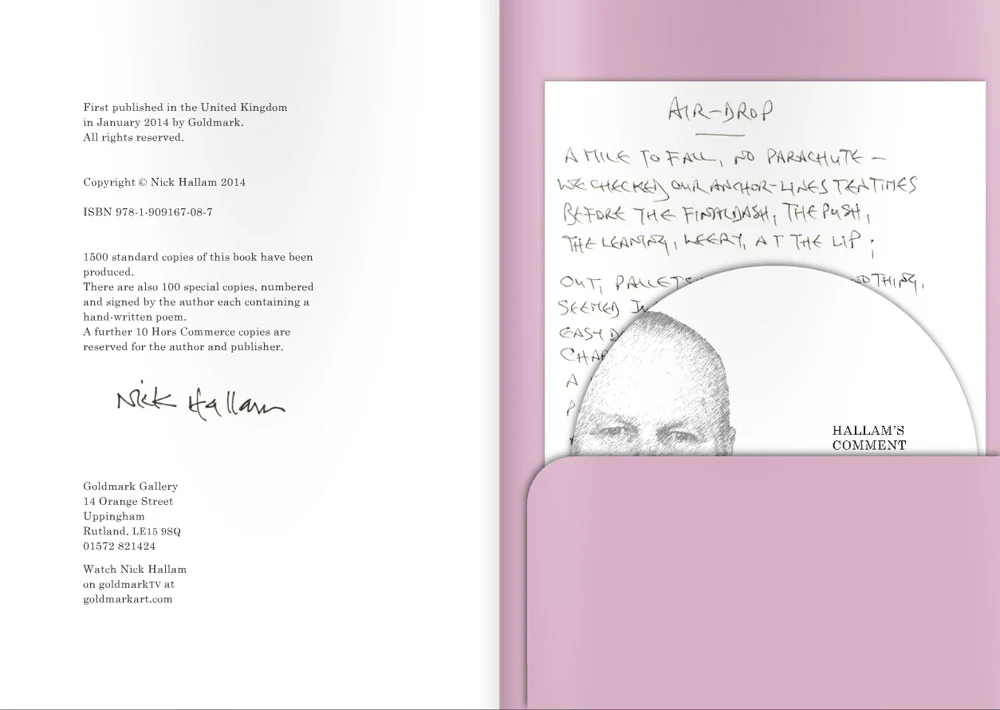 First published in the United Kingdom
in January 2014 by Goldmark.
All rights reserved.
Copyright © Nick Hallam 2014
ISBN 978-1-909167-08-7
1500 standard copies of this book have been
produced.
There are also 100 special copies, numbered
and signed by the author each containing a
hand-written poem.
A further 10 Hors Commerce copies are
reserved for the author and publisher.
Nick Hallam
Goldmark Gallery
14 Orange Street
Uppingham
Rutland, LE15 9SQ
01572 821424
Watch Nick Hallam
on goldmarkTV at
goldmarkart.com
AIR-DROP
A MILE TO FALL, NO PARACHUTE –
WE CHECKED OUR ANCHOR-LINES TEN TIMES
BEFORE THE FINAL DASH, THE PUSH,
THE LEANING, LEERY, AT THE LIP;
OUT, PALLETS
SEEMED
EASY
A
HALLAM'S
COMMENT